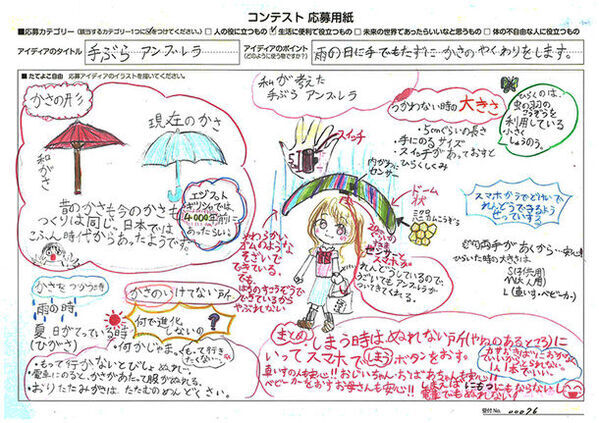 コンテスト 応募用紙
■応募カテゴリー（該当するカテゴリー1つに✓をつけてください。） □人の役に立つもの ☑生活に便利で役立つもの □未来の世界であったらいいなと思うもの □体の不自由な人に役立つもの
アイディアのタイトル
手ぶら アンブレラ
アイディアのポイント
(どのように使う物ですか？)
雨の日に手でもたずに かさのやくわりをします。
■たてよこ自由 応募アイディアのイラストを描いてください。
かさの形
現在のかさ
和がさ
昔のかさも今のかさも
つくりは同じ、日本では
こふん時代からあったようです。
エジプト
ギリシャでは
4000年前に
あったらしい。
私が考えた
手ぶら アンブレラ
スイッチ
内がわに
センサー
つかわない時の大きさ
・5cmぐらいの長さ
・手にのるサイズ
・スイッチがあっておすと
ひらくしくみ
ひらくのは、
虫の羽の
こうぞうを
利用している
小さく
しゅうのう。
ドーム
状
ハニカムこうぞう
スマホから
できるよう
せっていする
やわらかい
ゴムのような
そざいで
できている。
でも、
できているから
やぶれない
センサーと
スマホが
れんどうしているので、
うごいてもアンブレラが
ついてきてくれる。
両手があくから
ひらいた時の大きさは、
S(子供用)
M(大人用)
L(車いす、ベビーカー)
かさをつかう時
雨の時
夏 日がでている時
(ひがさ)
かさのいけてない所
何で進化
しないの？
・何かじゃま。
・もって行かないとびしょぬれ…
・電車にのると、かさがあたって服がぬれる。
・おりたたみかさは、たたむのめんどくさい。
まとめ
しまう時は、ぬれない所(やねのあるところ)に
いってスマホでしまうボタンをおす。
車いすの人も安心!! おじいちゃん・おばあちゃんも安心!!
ベビーカーをおすお母さんも安心!!
しまえば にもつにもならないし
電車でもぬれない!
1人1本でいい。
受付No. 00076